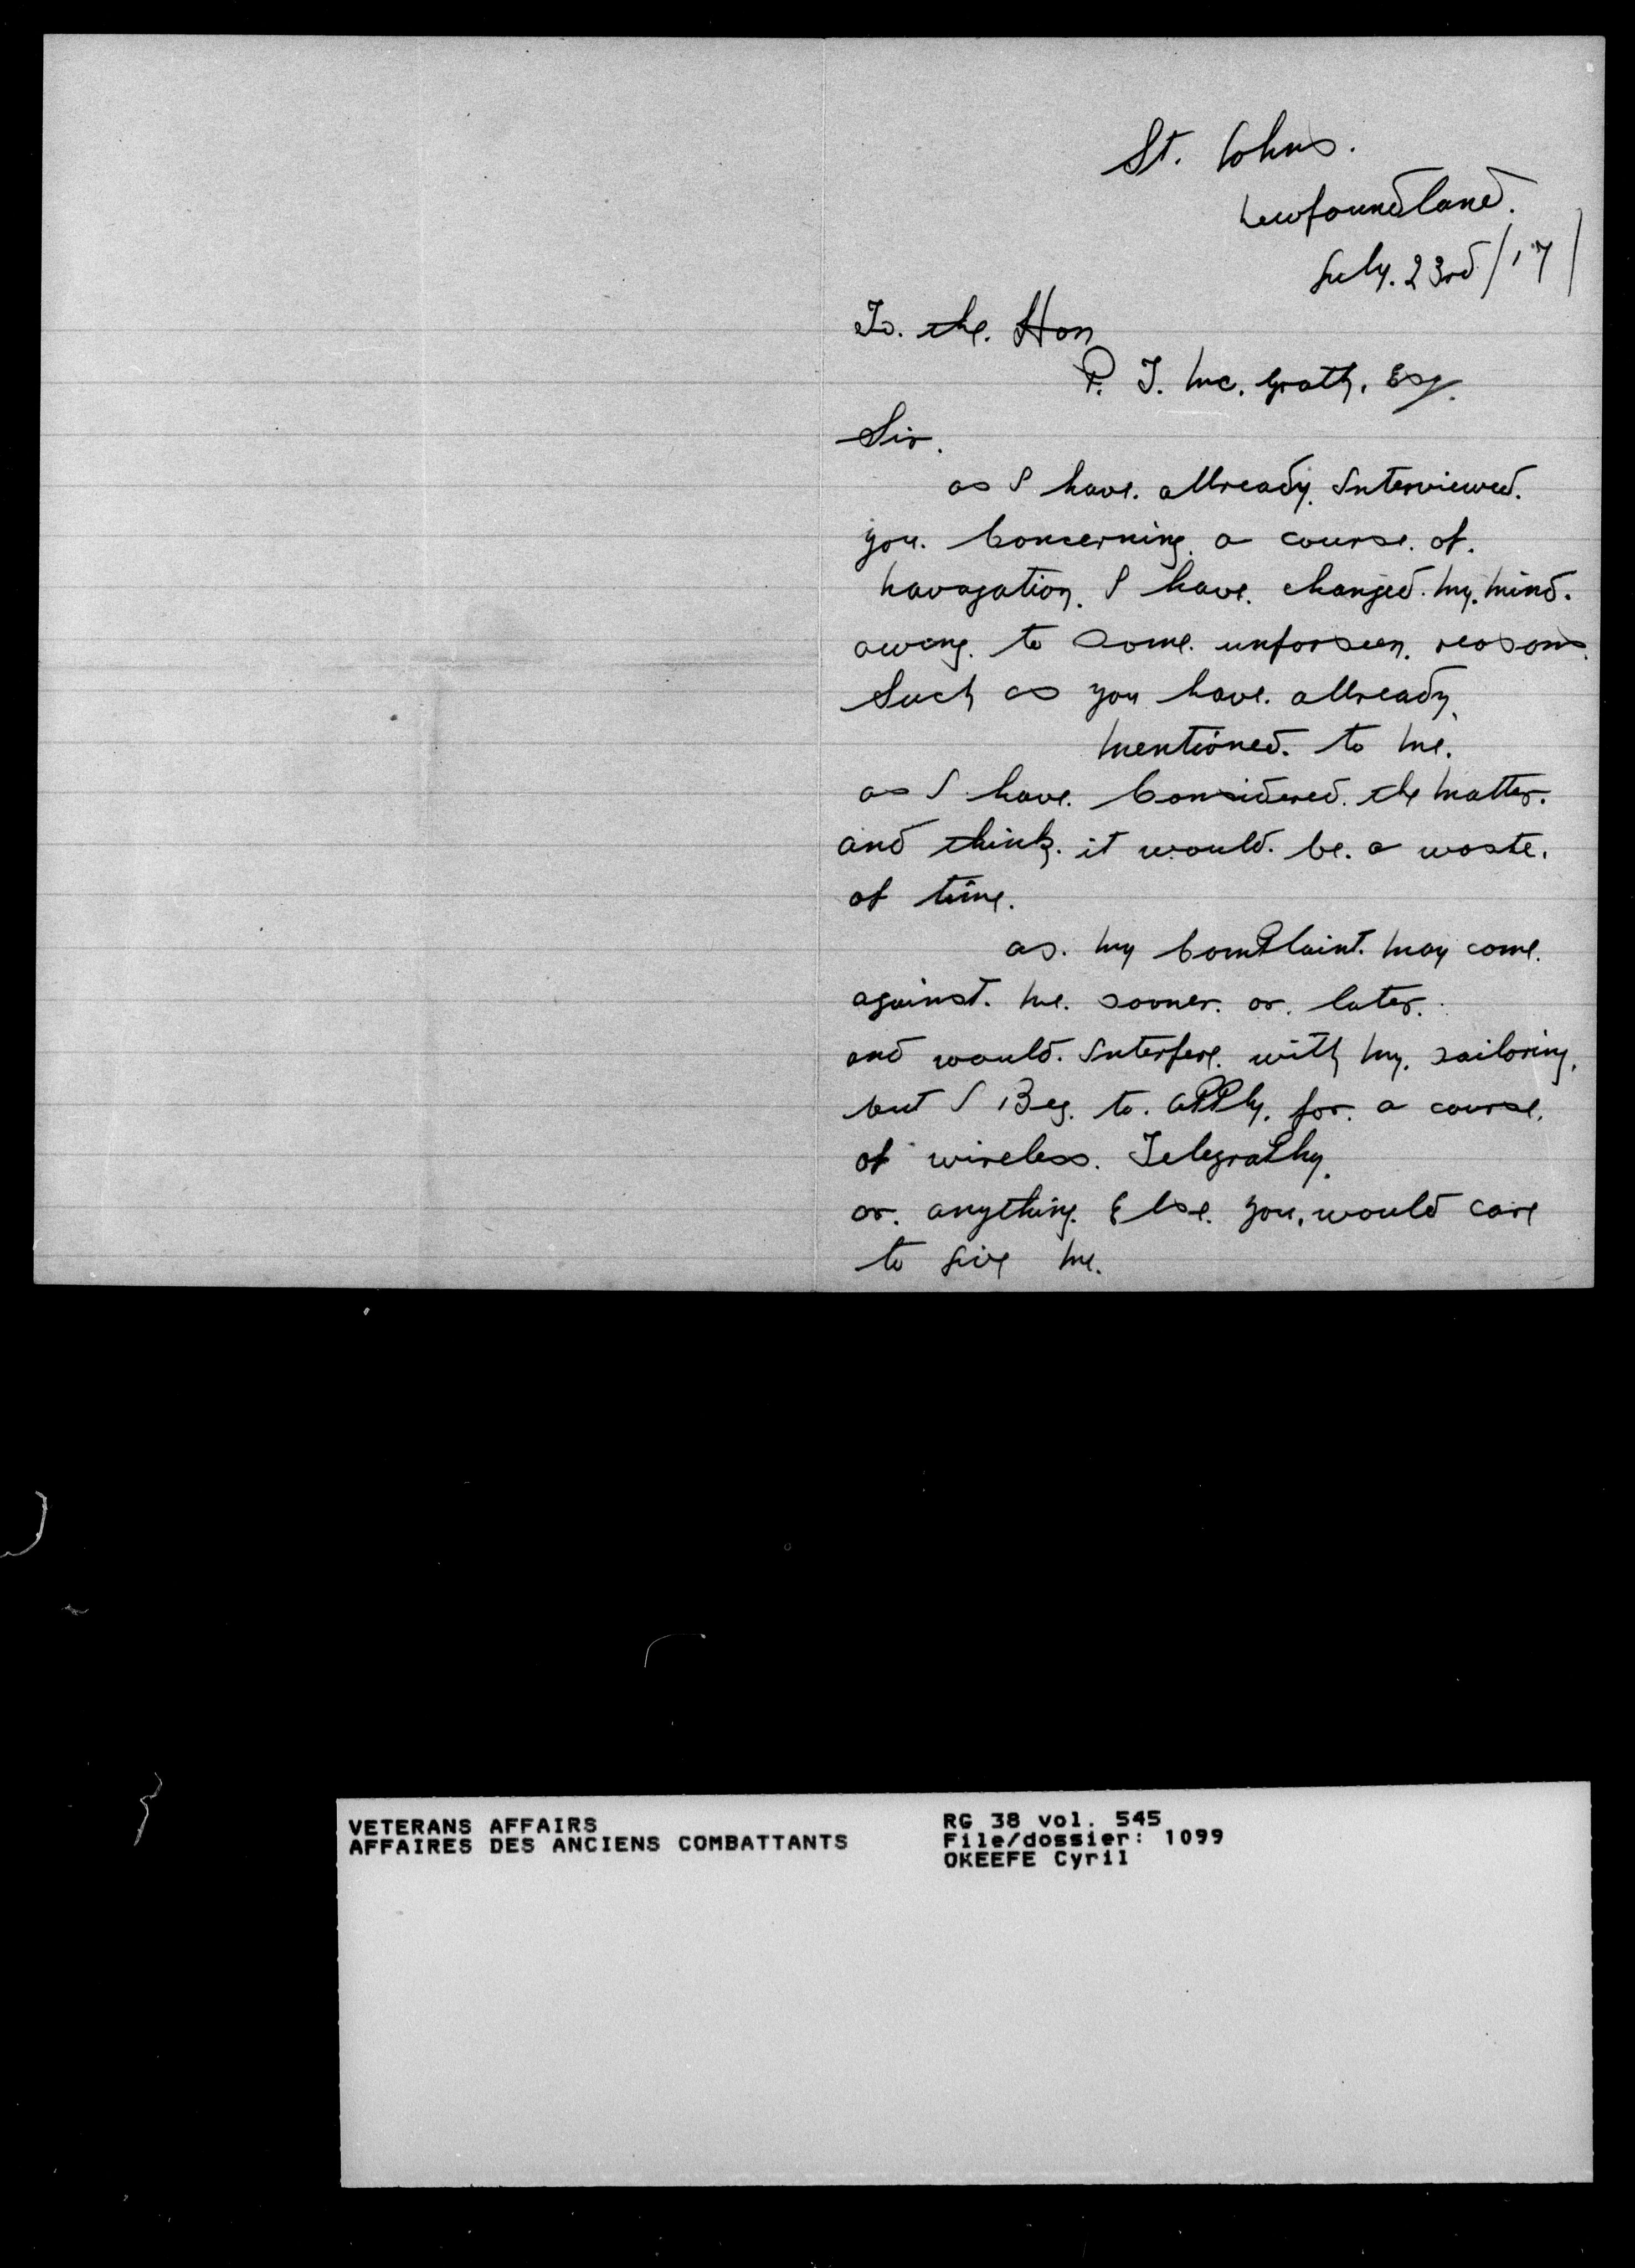 St. Johns.
Newfoundland.
July. 23rd/17/
To. the. Hon
P. T. Mc. Grath. Esq.
Sir.
as I have. allready. Interviewed.
you. Concerning. a course. of.
Navagation. I have. changed. my. mind.
owing. to some. unforseen. reasons.
Such as you have. allready.
mentioned. to me.
as I have. Considered. the matter.
and think. it would. be. a waste.
of time.
as. my ComPlaint. may come.
against. me. sooner. or. later.
and would. Interfere. with my. sailoring.
but I Beg. to. aPPly. for. a course.
of wireless. TelegraPhy.
or. anything. Else. you. would care
to give me.
VETERANS AFFAIRS
AFFAIRES DES ANCIENS COMBATTANTS
RG 38 vol. 545
File/dossier: 1099
OKEEFE Cyril